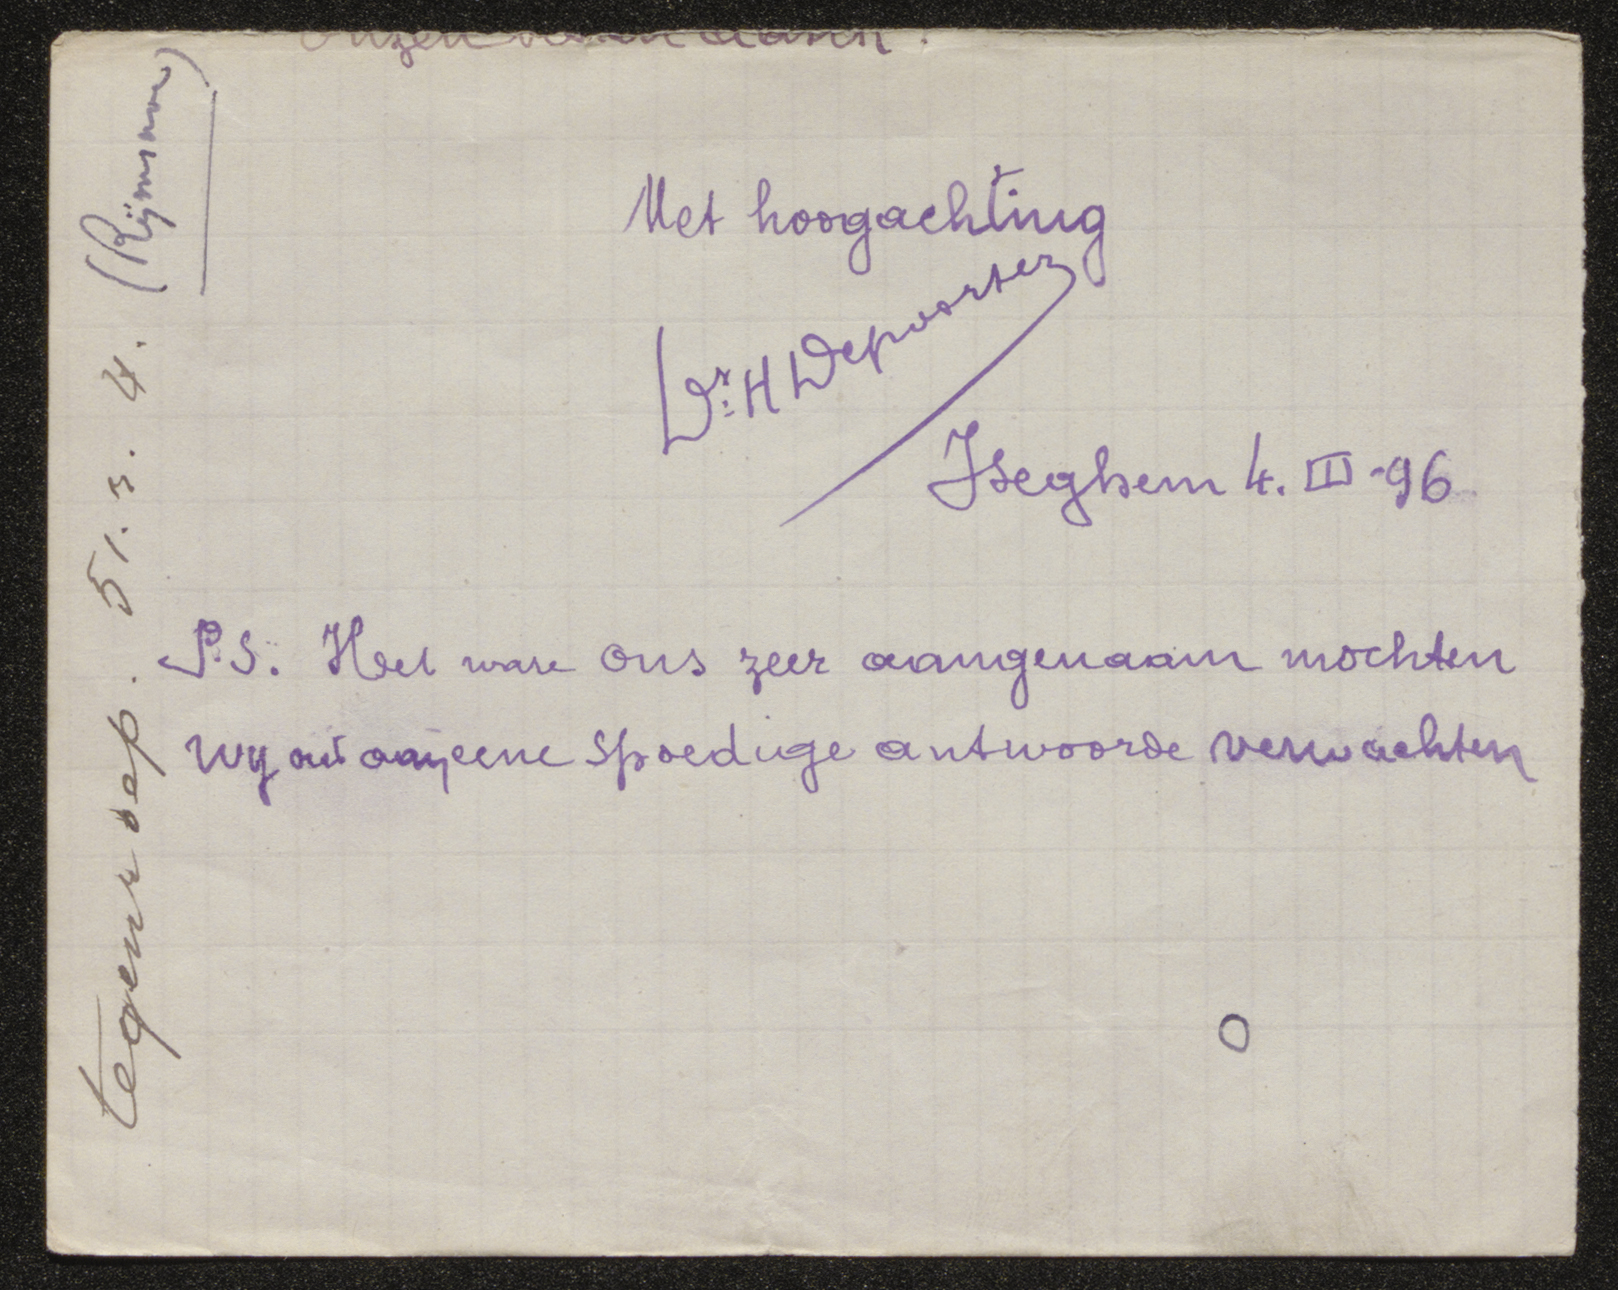 Met hoogachting
Dr. H Depoorter
Iseghem 4. III-96
P.S. Het ware ons zeer aangenaam mochten
wy eene spoedige antwoorde verwachten
O
tegenroep. 51. 3. 4.